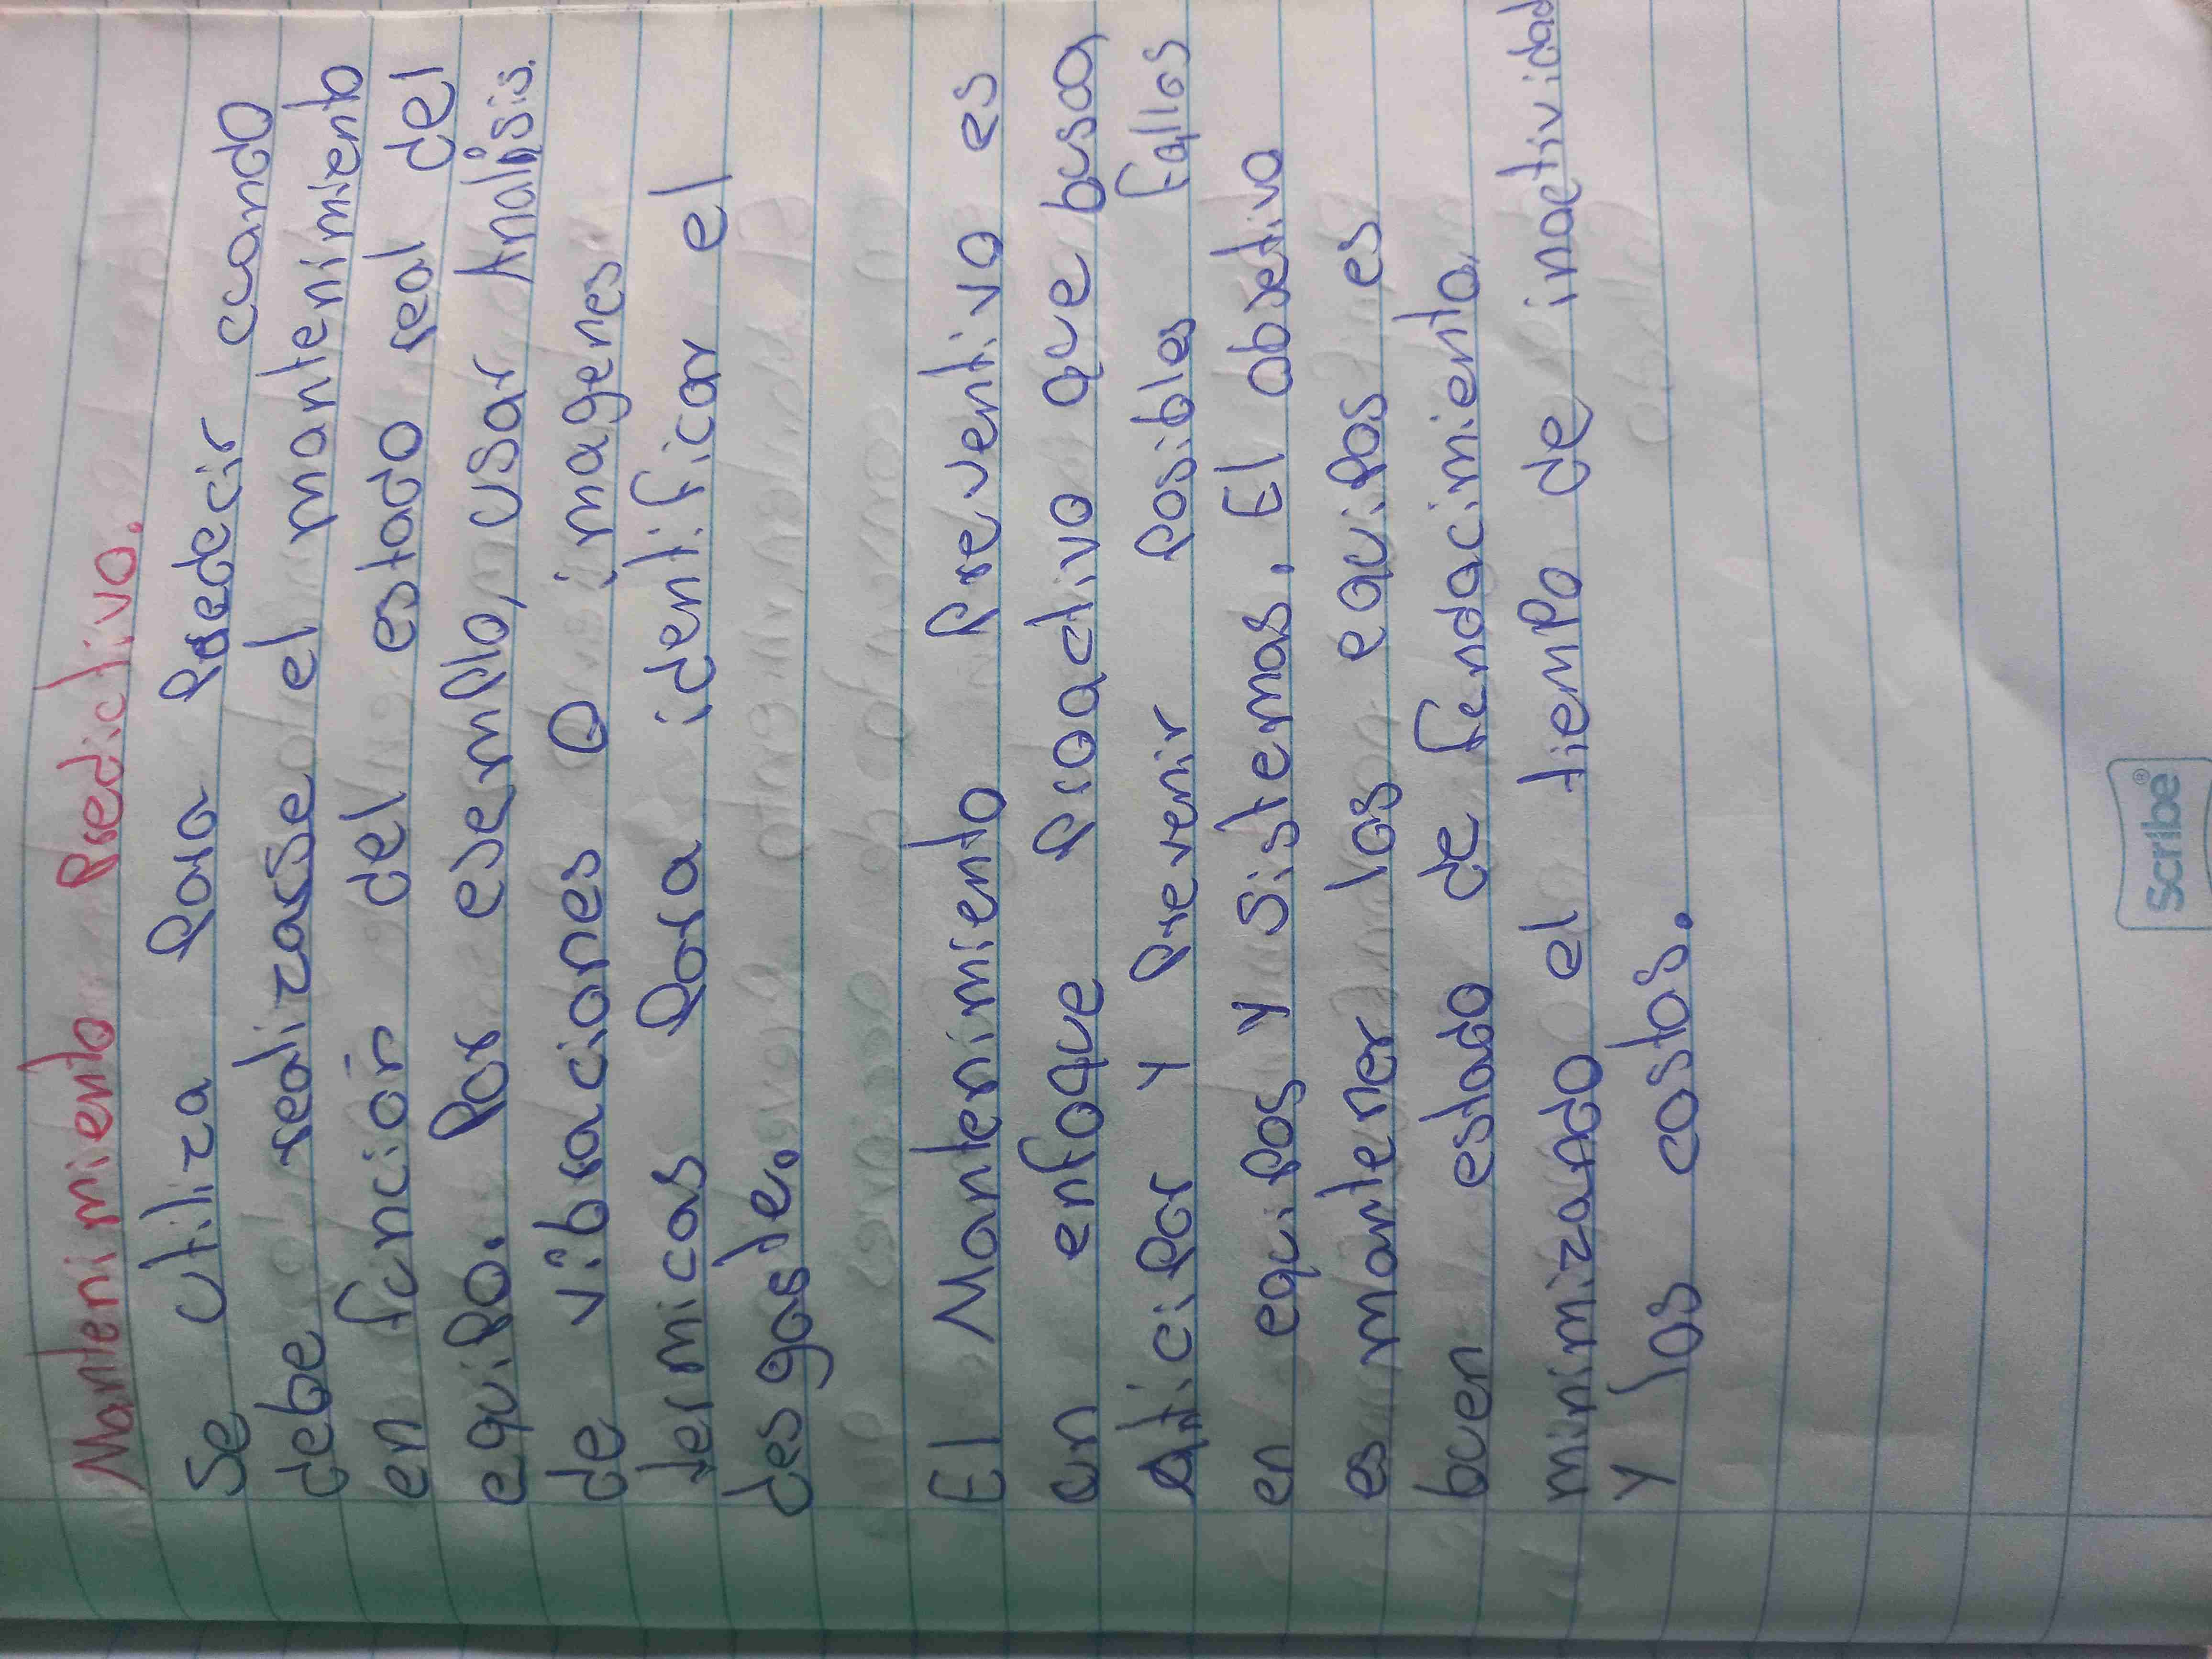 Mantenimiento Predictivo.
Se utiliza Para Predecir cuando
debe realizarse el mantenimiento
en función del estado real del
equipo. Por esemplo, usar Analisis
de vibraciones o imagenes
termicas Para identificar el
desgaste.
El Mantenimiento Preventivo es
un enfoque Proactivo que busca
anticipar y Prevenir Posibles Fallos
en equipos y sistemas. El obsetivo
es mantener los equipos es
buen estado de fendacimiento,
minimizando el tiempo de inactividad
y los costos.
Scribe®